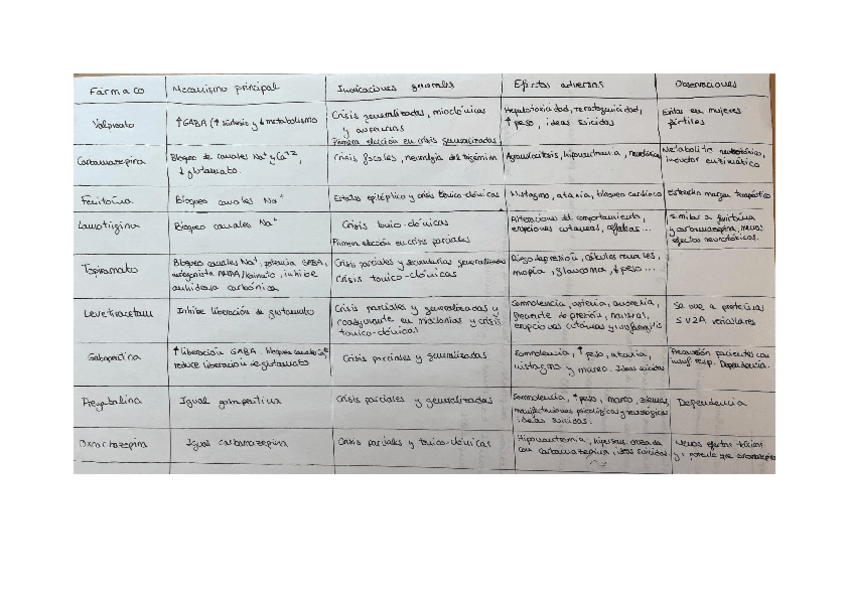 Fármaco Mecanismo principal Indicaciones generales Efectos adversos Observaciones
Valproato ↑GABA (↑ síntesis y ↓ metabolismo Crisis generalizadas, mioclónicas y ausencias Primera elección en crisis generalizadas Hepatotoxicidad, teratogenicidad, ↑ peso, ideas suicidas Evitar en mujeres fértiles
Carbamazepina Bloqueo de canales Na⁺ y Ca⁺², ↓ glutamato. Crisis focales, neuralgia del trigémino Agranulocitosis, hiponatremia, Metabolito neurotóxico, inductor enzimático
Fenitoína Bloqueo canales Na⁺ Estatus epiléptico y crisis tónico-clónicas Nistagmo, ataxia, bloqueo cardíaco Estrecho margen terapéutico
Lamotrigina Bloqueo canales Na⁺ Crisis tónico-clónicas Primera elección en crisis parciales Alteraciones del comportamiento, erupciones cutáneas, cefaleas... Similar a fenitoína y carbamazepina, menos efectos neurotóxicos.
Topiramato Bloqueo canales Na⁺, potencia GABA, antagonista NMDA/kainato, inhibe anhidrasa carbónica Crisis parciales y secundarias generalizadas Crisis tónico-clónicas Riesgo depresión, cálculos renales, miopía, glaucoma, ↓ peso...
Levetiracetam Inhibe liberación de glutamato Crisis parciales y generalizadas y coadyuvante en mioclonías y crisis tónico-clónicas Somnolencia, astenia, anorexia, depresión, náuseas, erupciones cutáneas y Se une a proteínas SV2A vesiculares
Gabapentina ↑ liberación GABA. bloquea canales Ca⁺² reduce liberación de glutamato Crisis parciales y generalizadas Somnolencia, ↑ peso, ataxia, nistagmo y mareo. Ideas suicidas Precaución pacientes con insuf resp. Dependencia.
Pregabalina Igual gabapentina Crisis parciales y generalizadas Somnolencia, ↑ peso, mareo, edemas, manifestaciones psicológicas y neurológicas ideas suicidas. Dependencia
Oxcarbazepina Igual carbamazepina Crisis parciales y tónico-clónicas Hiponatremia, hipersens. cruzada con carbamazepina, ideas suicidas Menos efectos tóxicos y potencia que carbamazepina